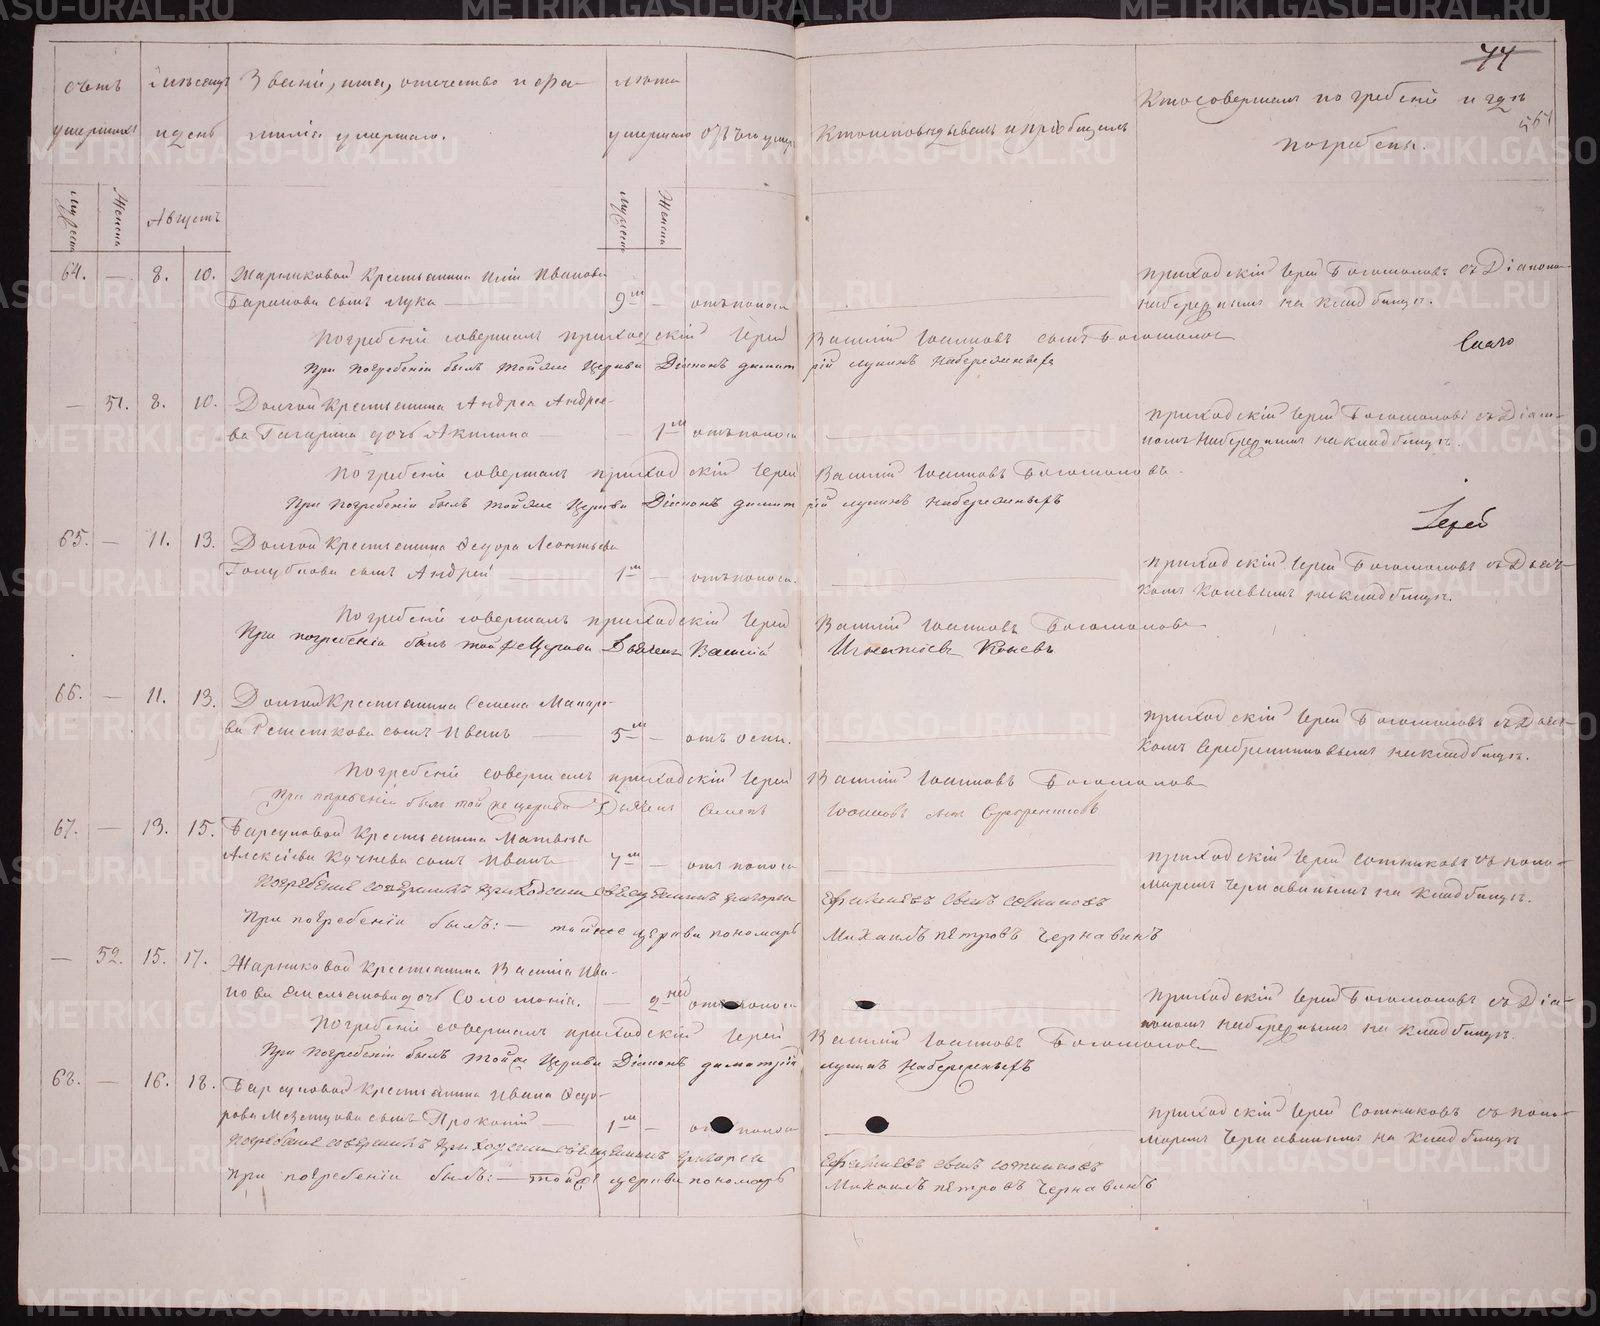 44
561
Счетъ умершихъ
Мѣсяцъ и день
Званіе, имя, отчество и фамилія умершаго.
Лѣта умершаго
Отъ чего умеръ
Кто исповѣдывалъ и пріобщалъ
Кто совершалъ погребеніе и гдѣ погребены.
Мужеска
Женска
Августъ
Мужеска
Женска
64. — 8. 10. Жарниковой Крестьянина Иліи Иванова
Баранова сынъ Лука — 9 — отъ поноса
приходскій Іерей Богомоловъ съ Діакономъ
Набережнымъ на кладбищѣ.
Погребеніе совершалъ приходскій Іерей Василій Іоанновъ сынъ Богомоловъ
При погребеніи былъ той же Церкви Діаконъ Димитрій Лукинъ Набережныхъ
— 51. 8. 10. Долгой Крестьянина Андрея Андрее-
ва Гагарина дочь Акилина — 1 отъ поноса
приходскій Іерей Богомоловъ съ Діако-
номъ Набережнымъ на кладбищѣ.
Погребеніе совершалъ приходскій Іерей Василій Іоанновъ Богомоловъ.
При погребеніи былъ той же Церкви Діаконъ Димитрій Лукинъ Набережныхъ
Іерей
65. — 11. 13. Долгой Крестьянина Ѳедора Леонтьева
Голубкова сынъ Андрей — 1 — отъ поноса.
приходскій Іерей Богомоловъ съ Дьяч-
комъ Коневымъ на кладбищѣ.
Погребеніе совершалъ приходскій Іерей Василій Іоанновъ Богомоловъ
При погребеніи былъ той же Церкви Дьячекъ Василій Игнатіевъ Коневъ
66. — 11. 13. Долгой Крестьянина Семена Макаро-
ва Решеткова сынъ Иванъ — 5 — отъ оспы.
приходскій Іерей Богомоловъ съ Дьяч-
комъ Серебренниковымъ на кладбищѣ.
Погребеніе совершалъ приходскій Іерей Василій Іоанновъ Богомоловъ
При погребеніи былъ той же церкви Дьячекъ Семенъ Іоанновъ сынъ Серебренниковъ
67. — 13. 15. Барсуковой Крестьянина Матвѣя
Алексіева Кучнева сынъ Иванъ 7 — отъ поноса
приходскій Іерей Сотниковъ съ поно-
маремъ Чернавинымъ на кладбищѣ.
Погребеніе совершалъ приходскій священникъ Григорій Ефимьевъ сынъ Сотниковъ
При погребеніи былъ: — той же церкви пономарь Михаилъ Петровъ Чернавинъ
— 52. 15. 17. Жарниковой Крестьянина Василія Ива-
нова Емельянова дочь Соломонія. — 2 нед отъ поноса
приходскій Іерей Богомоловъ съ Діа-
кономъ Набережнымъ на кладбищѣ.
Погребеніе совершалъ приходскій Іерей Василій Іоанновъ Богомоловъ
При погребеніи былъ той же Церкви Діаконъ Димитрій Лукинъ Набережныхъ
68. — 16. 18. Барсуковой Крестьянина Ивана Ѳедо-
рова сынъ Прокопій — 1 — отъ поноса
приходскій Іерей Сотниковъ съ поно-
маремъ Чернавинымъ на кладбищѣ
Погребеніе совершалъ приходскій священникъ Григорій Ефимьевъ сынъ Сотниковъ
При погребеніи былъ: — той же церкви пономарь Михаилъ Петровъ Чернавинъ
METRIKI.GASO-URAL.RU